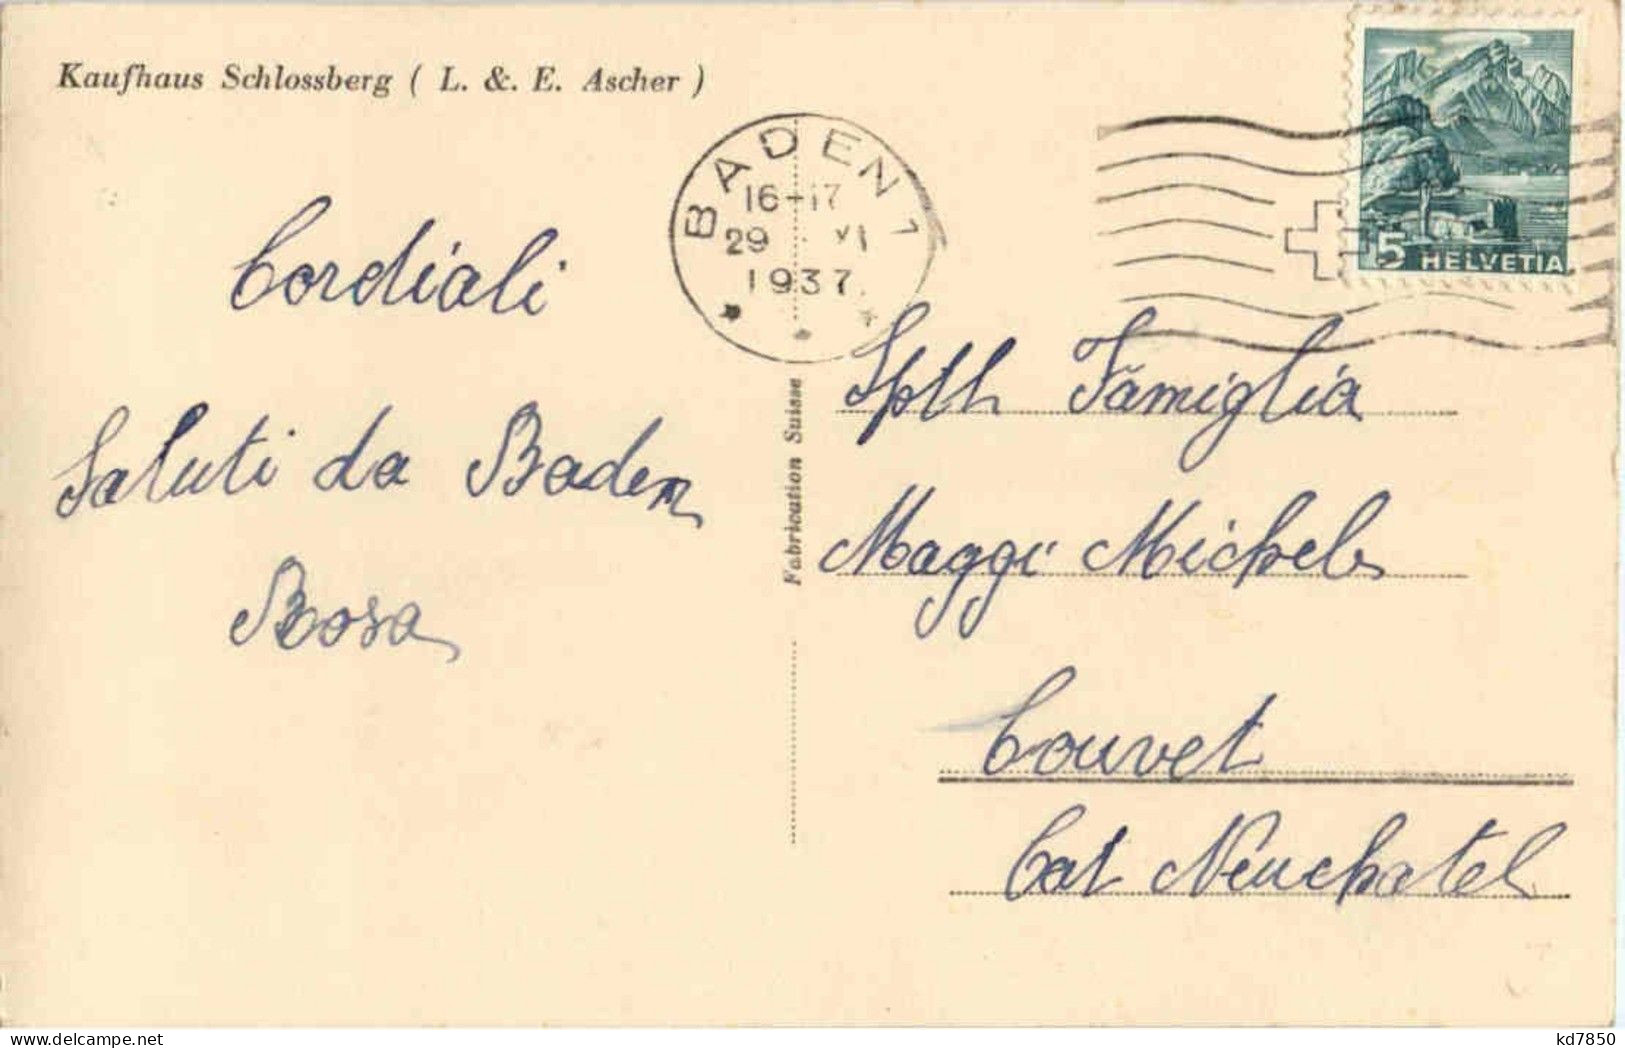 Kaufhaus Schlossberg ( L. &. E. Ascher )
BADEN 1
16-17
29 . XI
1937
5 HELVETIA
Cordiali
Saluti da Baden
Rosa
Fabrication Suisse
Famiglia
Maggi Michele
Couvet
Cat Neuchatel
kd7850